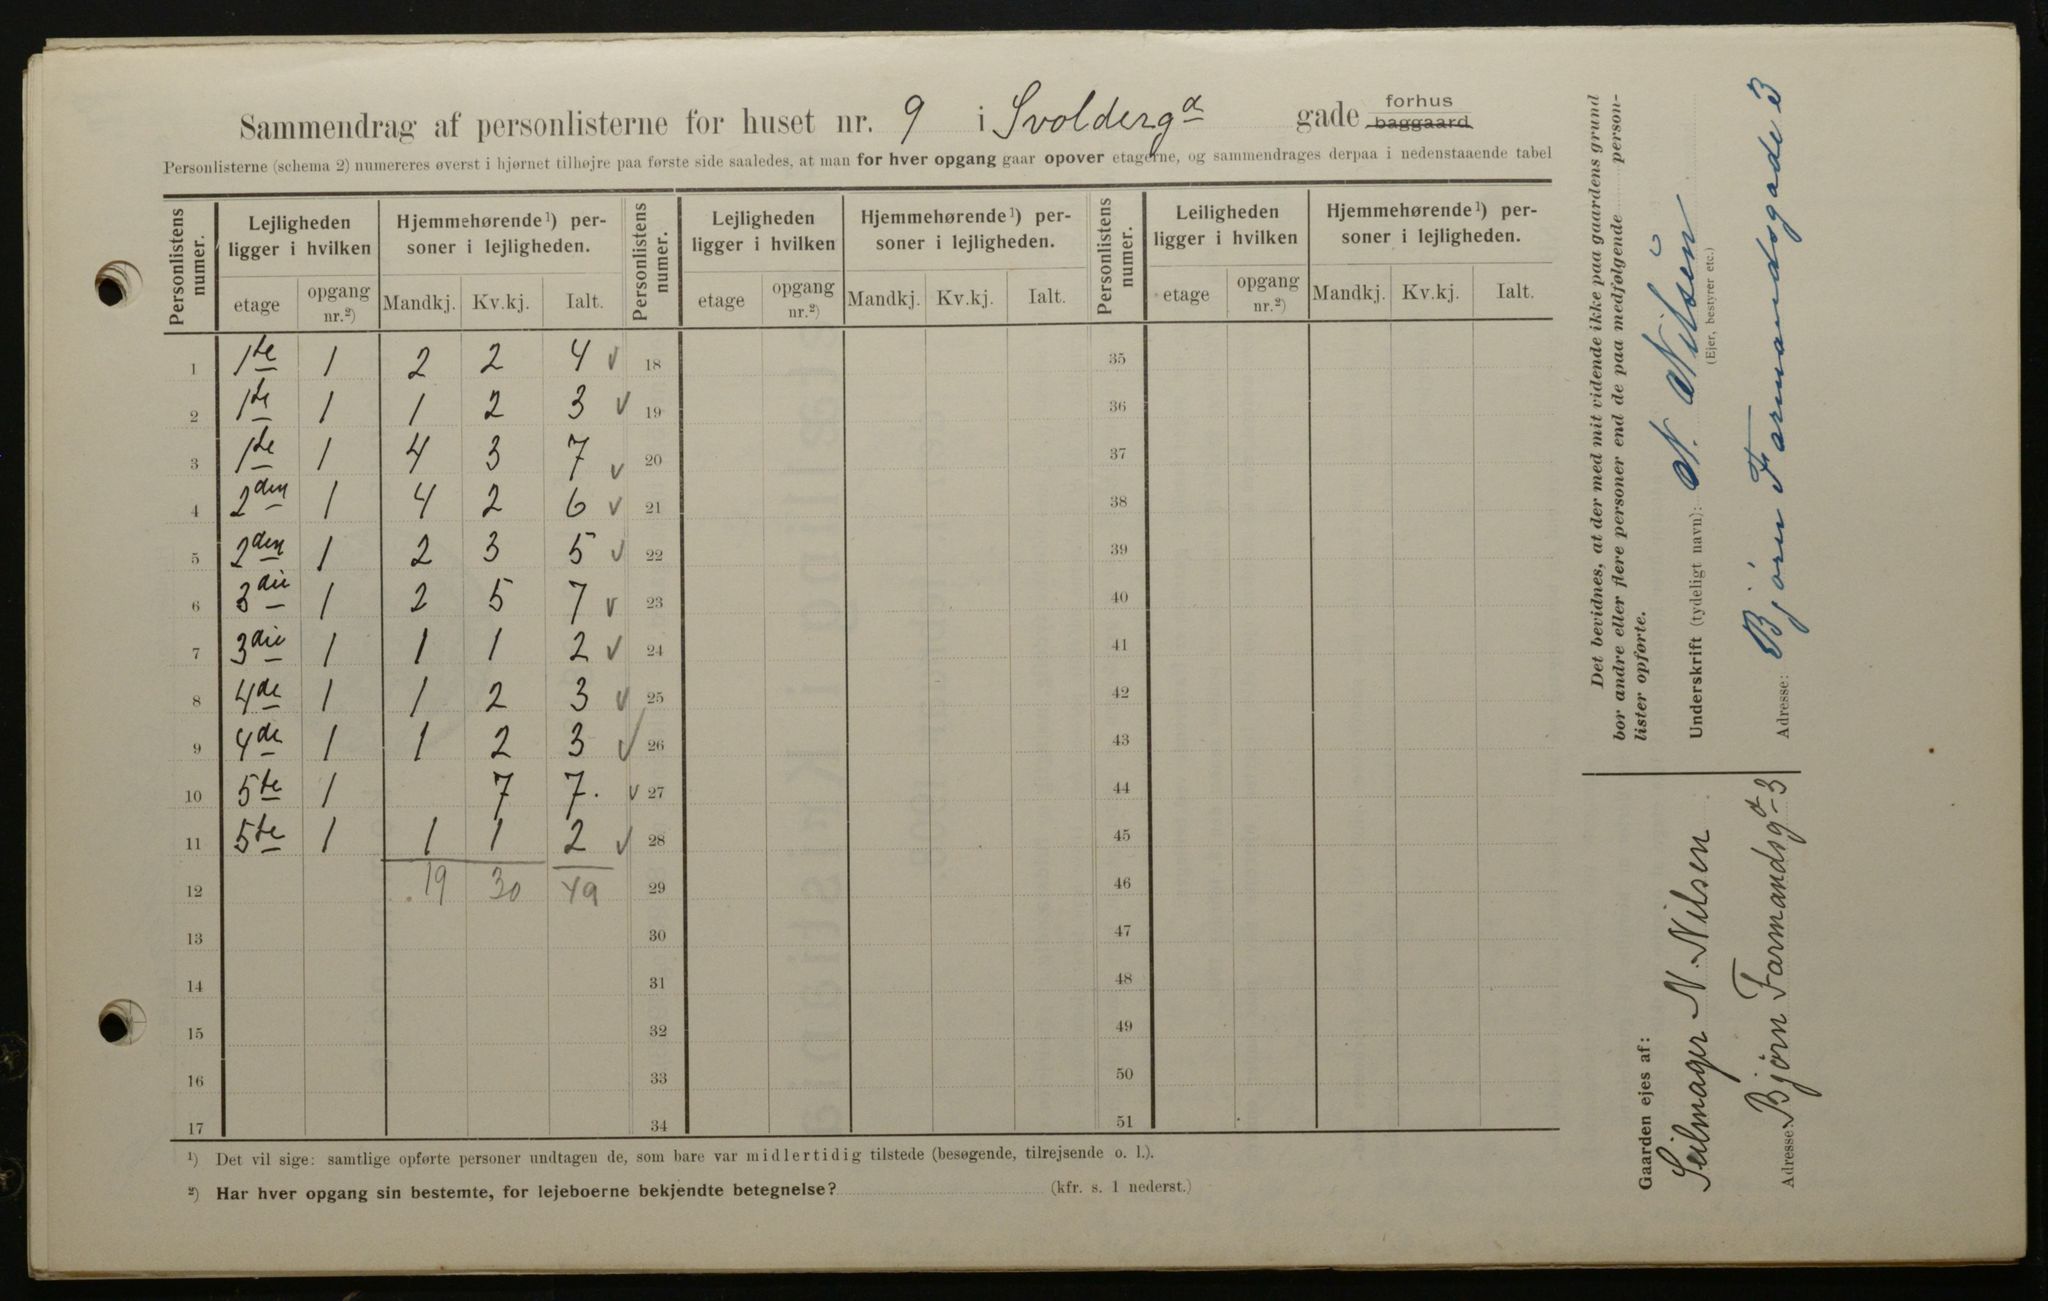 Sammendrag af personlisterne for huset nr. 9 i Svolderga gade forhus baggaard
Personlisterne (schema 2) numereres øverst i hjørnet tilhøjre paa første side saaledes, at man for hver opgang gaar opover etagerne, og sammendrages derpaa i nedenstaaende tabel
Personlistens numer. Lejligheden ligger i hvilken Hjemmehørende¹) personer i lejligheden. Personlistens numer. Lejligheden ligger i hvilken Hjemmehørende¹) personer i lejligheden. Personlistens numer. Leiligheden ligger i hvilken Hjemmehørende¹) personer i lejligheden.
etage opgang nr.²) Mandkj. Kv.kj. Ialt. etage opgang nr.²) Mandkj. Kv.kj. Ialt. etage opgang nr.²) Mandkj. Kv.kj. Ialt.
1 1te 1 2 2 4 v 18 35
2 1te 1 1 2 3 v 19 36
3 1te 1 4 3 7 v 20 37
4 2den 1 4 2 6 v 21 38
5 2den 1 2 3 5 v 22 39
6 3die 1 2 5 7 v 23 40
7 3die 1 1 1 2 v 24 41
8 4de 1 1 2 3 v 25 42
9 4de 1 1 2 3 v 26 43
10 5te 1 7 7. v 27 44
11 5te 1 1 1 2 v 28 45
12 19 30 49 29 46
13 30 47
14 31 48
15 32 49
16 33 50
17 34 51
¹) Det vil sige: samtlige opførte personer undtagen de, som bare var midlertidig tilstede (besøgende, tilrejsende o. l.).
²) Har hver opgang sin bestemte, for lejeboerne bekjendte betegnelse? (kfr. s. 1 nederst.)
Det bevidnes, at der med mit vidende ikke paa gaardens grund
bor andre eller flere personer end de paa medfølgende person-
lister opførte.
Underskrift (tydeligt navn): N. Nilsen
(Ejer, bestyrer etc.)
Adresse: Bjørn Farmandsgade 3
Gaarden ejes af:
Seilmager N. Nilsen
Adresse: Bjørn Farmandsga 3